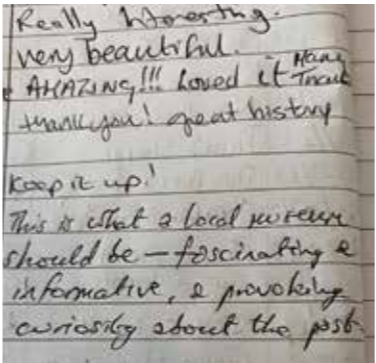 Really Interesting.
very beautiful.
AMAZING!!! Loved it Many
thank you! great history
Keep it up!
This is what a local museum
should be – fascinating &
informative, & provoking
curiosity about the past.